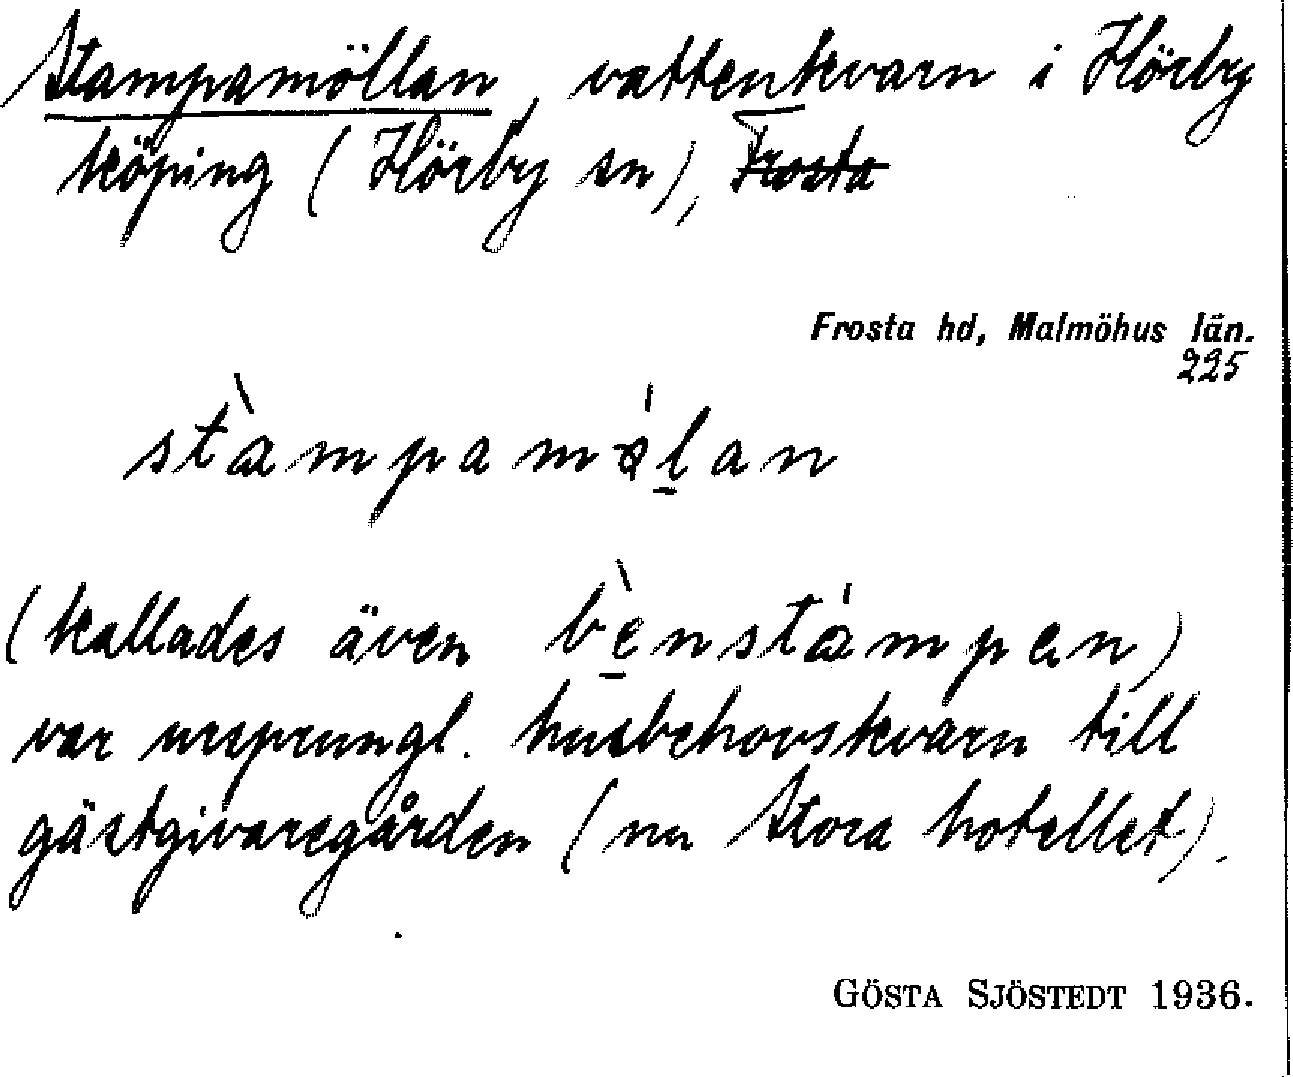 Stampamöllan, vattenkvarn i Hörby
köping (Hörby sn), Frosta
Frosta hd, Malmöhus län.
225
stàmpamǿlan
(kallades även bènstámpen)
var ursprungl. husbehovskvarn till
gästgivaregården (nu Stora hotellet).
GÖSTA SJÖSTEDT 1936.